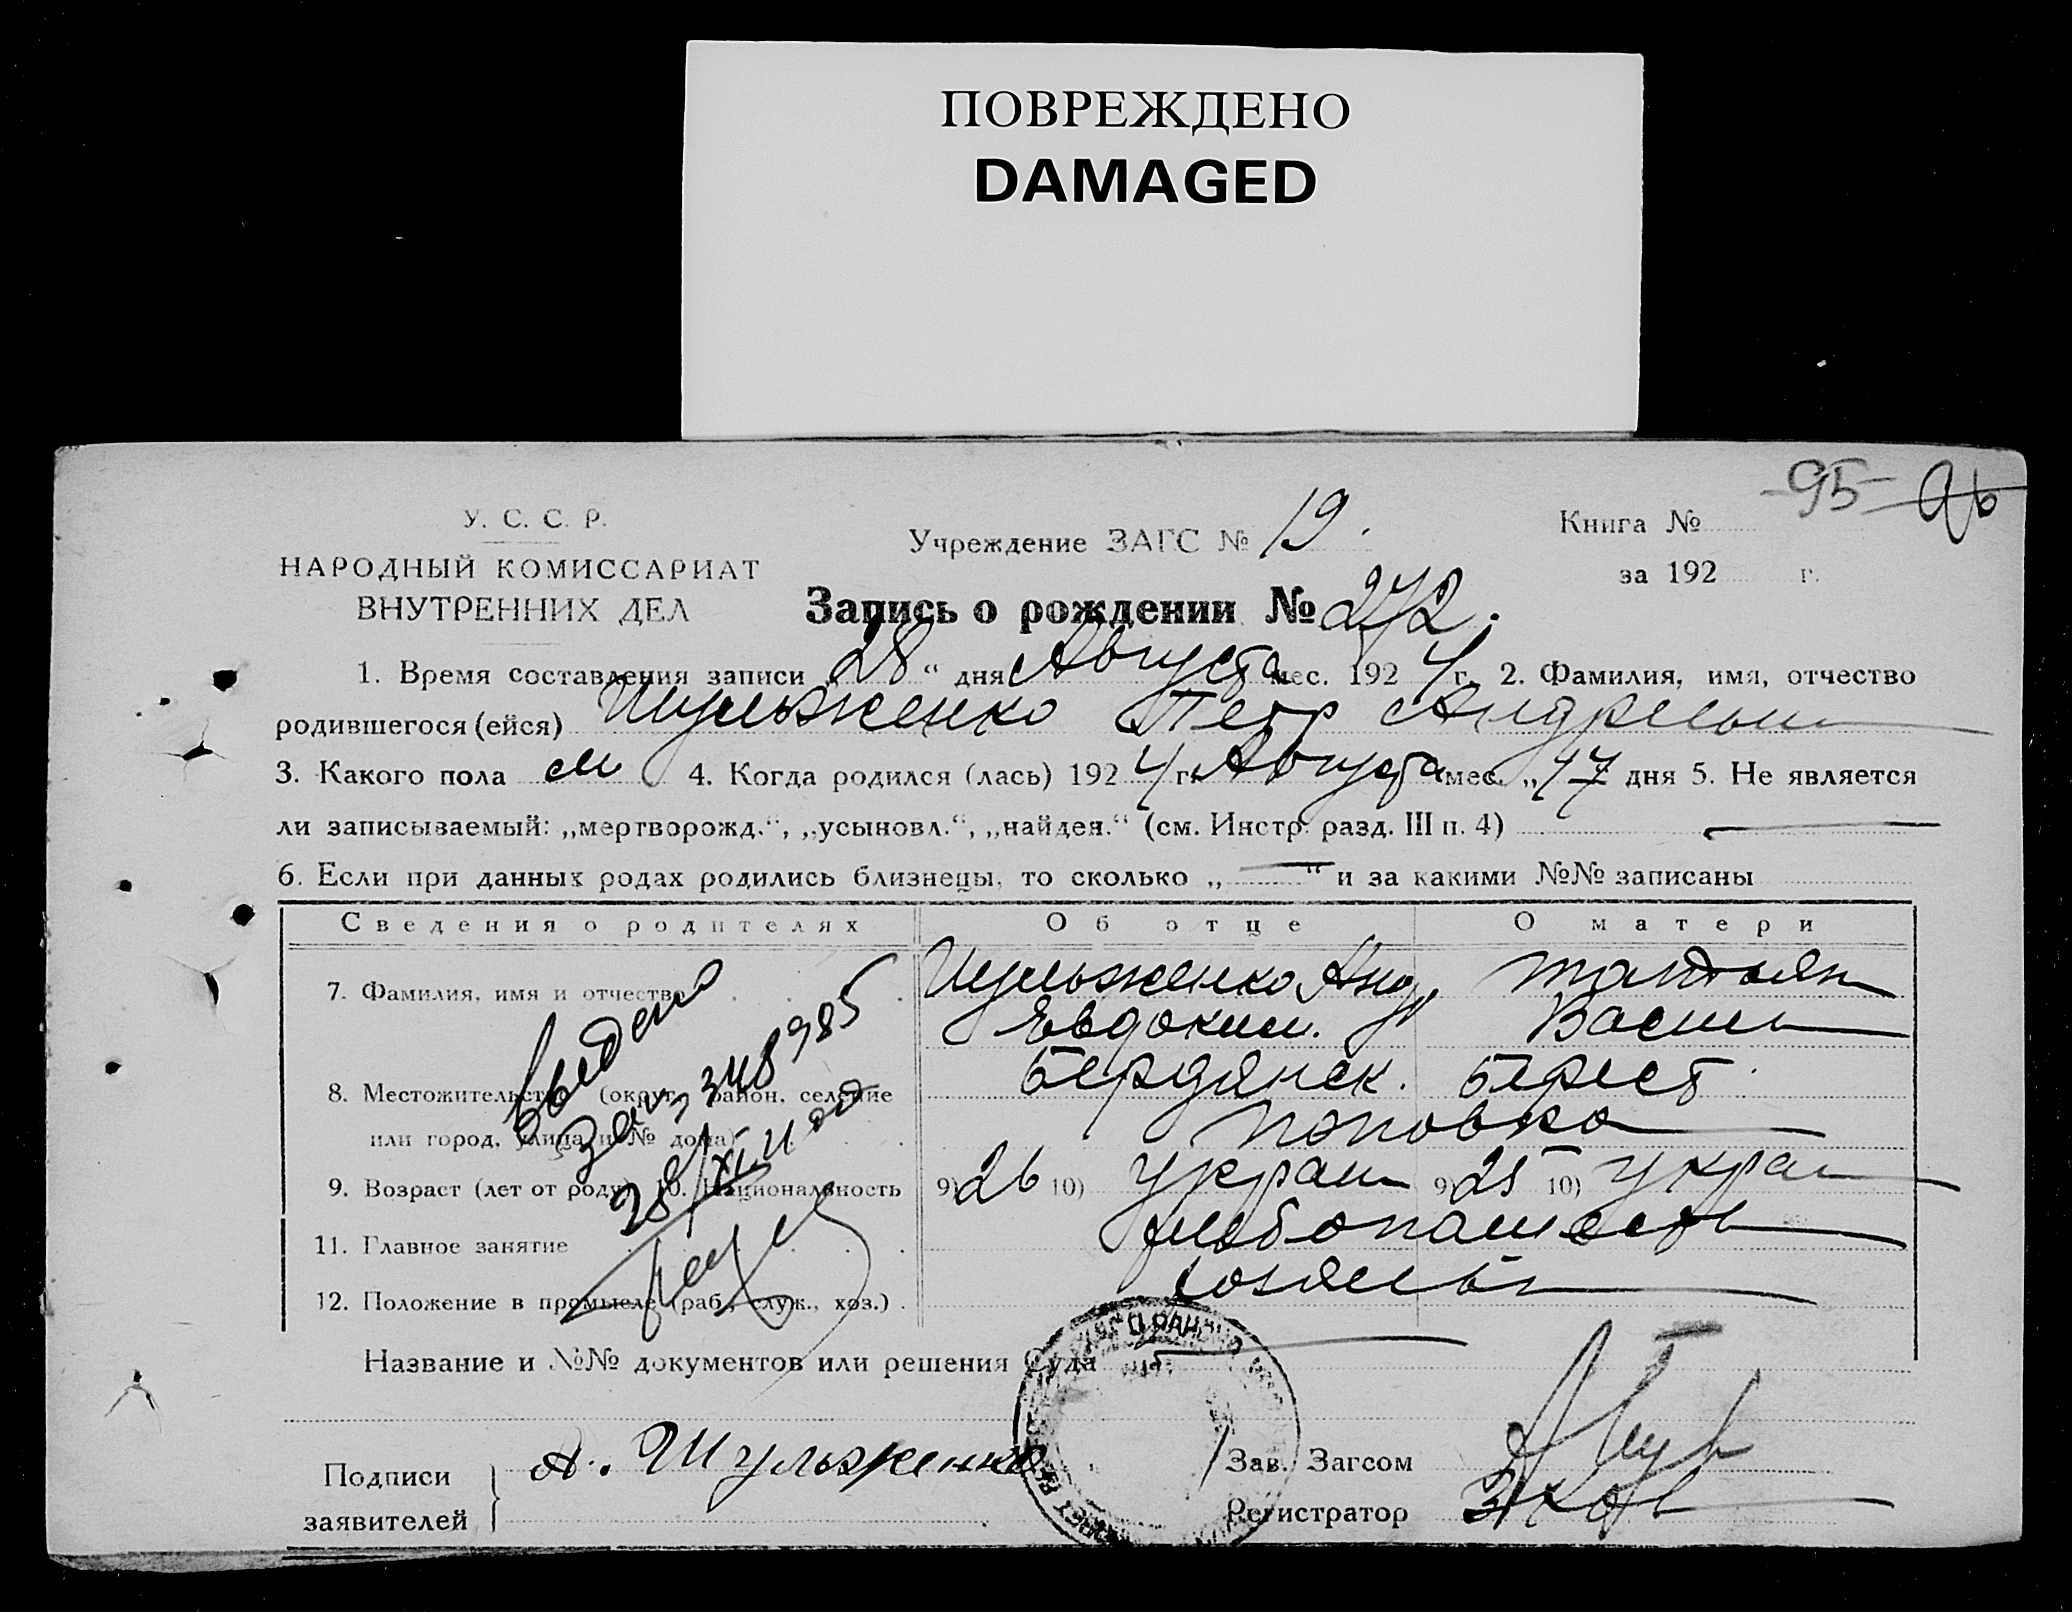 ПОВРЕЖДЕНО
DAMAGED
95 96
У. С. С. Р.
НАРОДНЫЙ КОМИССАРИАТ
ВНУТРЕННИХ ДЕЛ
Учреждение ЗАГС № 19.
Книга №
за 192 г.
Запись о рождении № 272.
1. Время составления записи „28“ дня Августа мес. 1924 г. 2. Фамилия, имя, отчество
родившегося (ейся) Шульженко Петр Андреевич
3. Какого пола м 4. Когда родился (лась) 1924 г. Августа мес. „17 дня 5. Не является
ли записываемый: „мертворожд.“, „усыновл.“, „найден.“ (см. Инстр. разд. III п. 4)
6. Если при данных родах родились близнецы, то сколько „—“ и за какими №№ записаны
Сведения о родителях Об отце О матери
7. Фамилия, имя и отчество Шульженко Анд. Татьян
Евдоким. Васил
8. Местожительство (округ, район, селение Бердянск. Берест.
или город, улица и № дома) Поповка
9. Возраст (лет от роду) 10. Национальность 9) 26 10) Украин 9) 25 10) Укра
11. Главное занятие хлебопашест
12. Положение в промысле (раб., служ., хоз.) хозяева
Выдано
348985
Название и №№ документов или решения Суда
Подписи
заявителей
А. Шульженко
Зав. Загсом
Регистратор